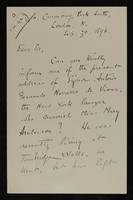 London N.
Sep. 30. 1896.
Dear Sir,
Can you kindly
inform me of the present
address of Signor Antonio
Fernando Navarro de Viana,
the New York lawyer
who married Miss Mary
Anderson? He was
recently living at
Tunbridge Wells, in
Kent, but has left